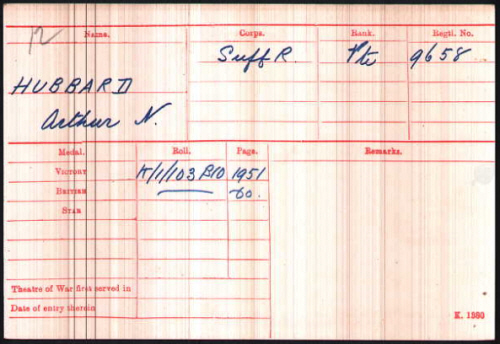 12
Name. Corps. Rank. Regtl. No.
HUBBARD Suff R. Pte 9658
Arthur N.
Medal. Roll. Page. Remarks.
VICTORY K/1/103 B10 1951
BRITISH do.
STAR
Theatre of War first served in
Date of entry therein
K. 1380